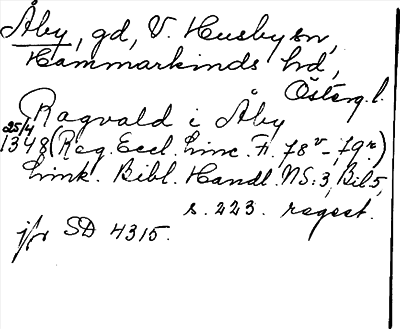 Åby, gd, V. Husby sn,
Hammarkinds hd,
Österg.l.
Ragvald i Åby
25/4
1348 (Reg. Eccl. Linc. F. 78v - 79r)
Link. Bibl. Handl. NS:3, Bil 5,
s. 223. regest.
jfr SD 4315.